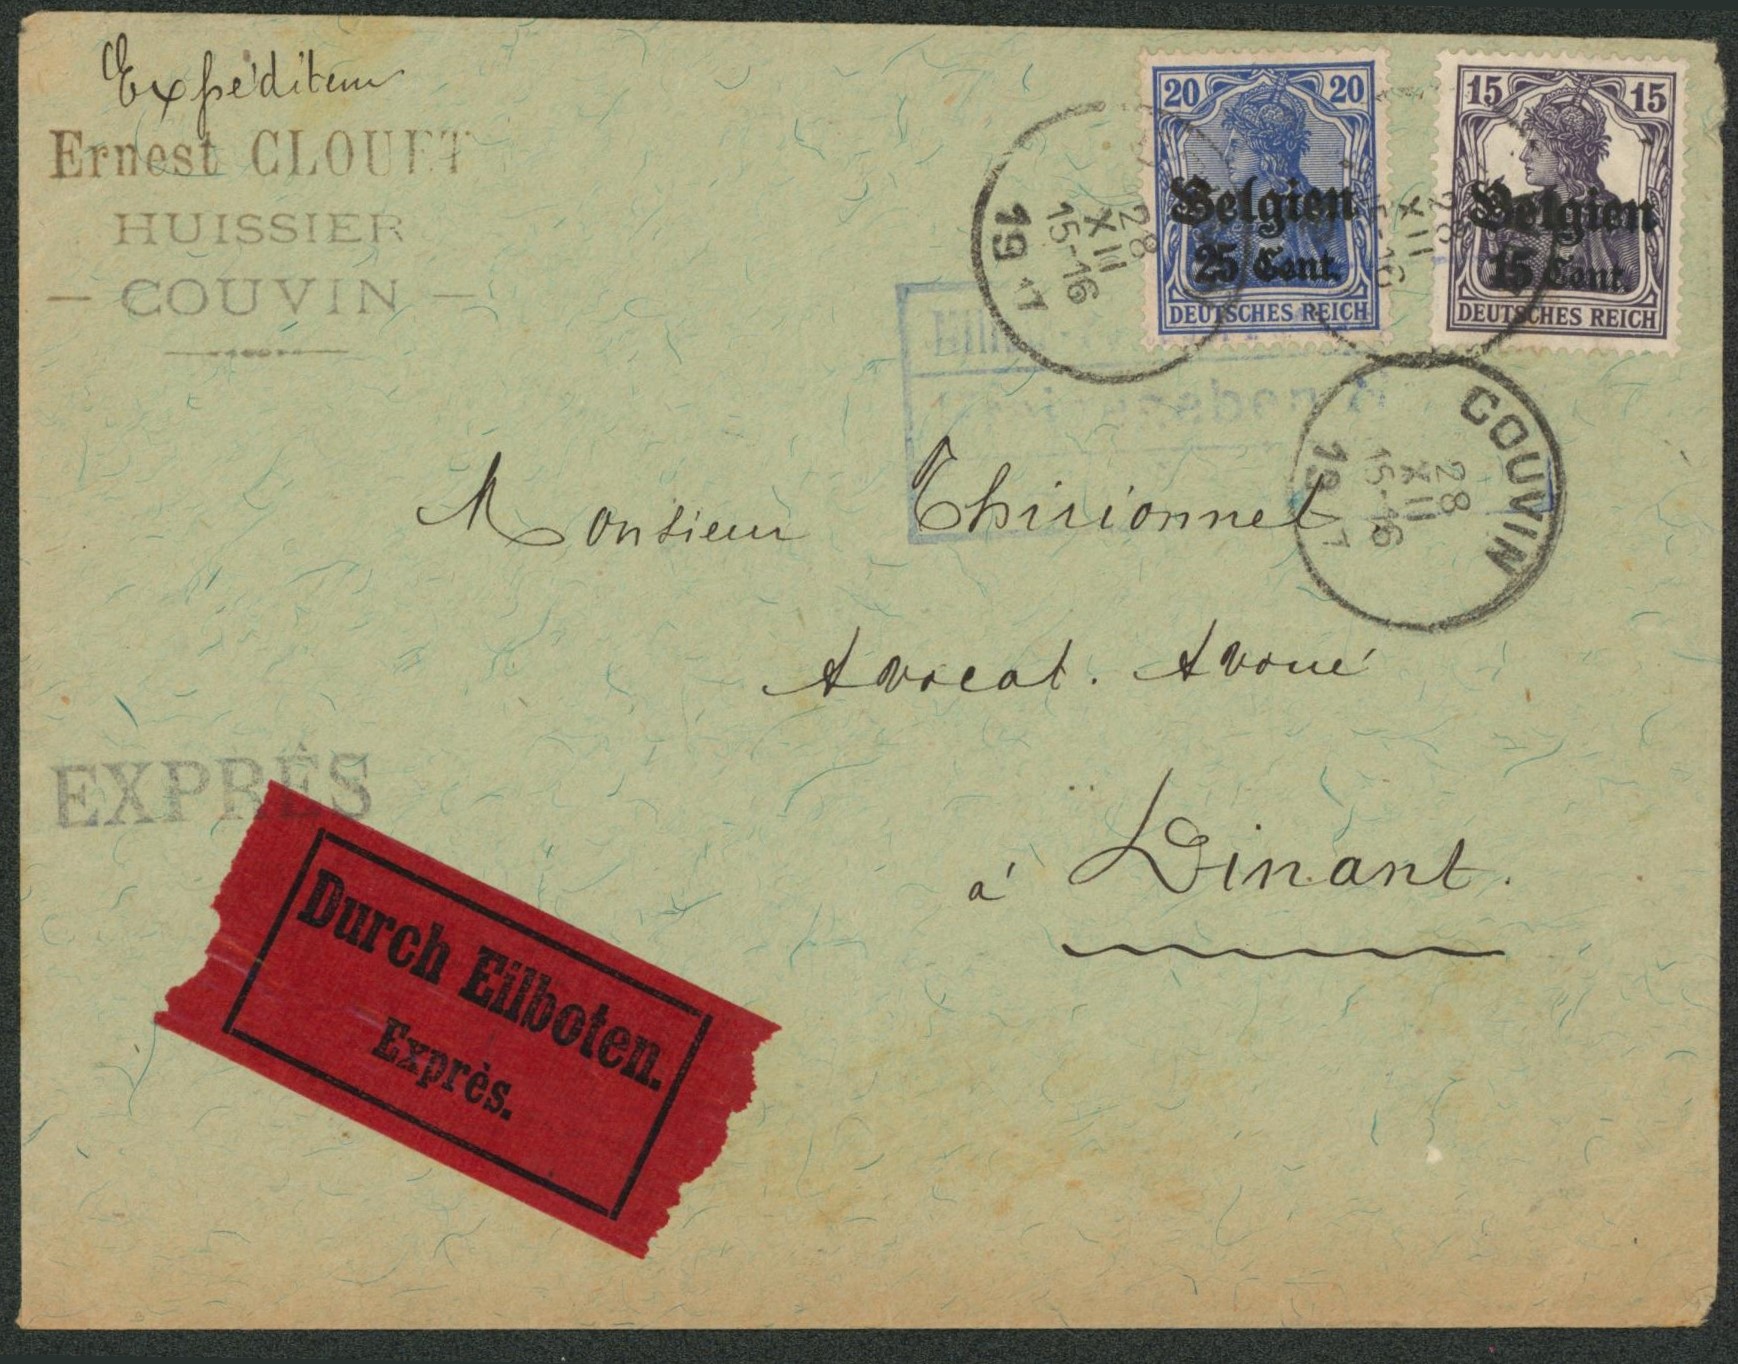 Expéditeur
Ernest CLOUET
HUISSIER
— COUVIN —
20 20
Belgien
25 Cent.
DEUTSCHES REICH
15 15
Belgien
15 Cent.
DEUTSCHES REICH
28
XII
15-16
19 17
28
XII
15-16
COUVIN
28
XII
15-16
19 17
Monsieur Thirionnet
Avocat. Avoué
à Dinant.
EXPRÈS
Durch Eilboten.
Exprès.